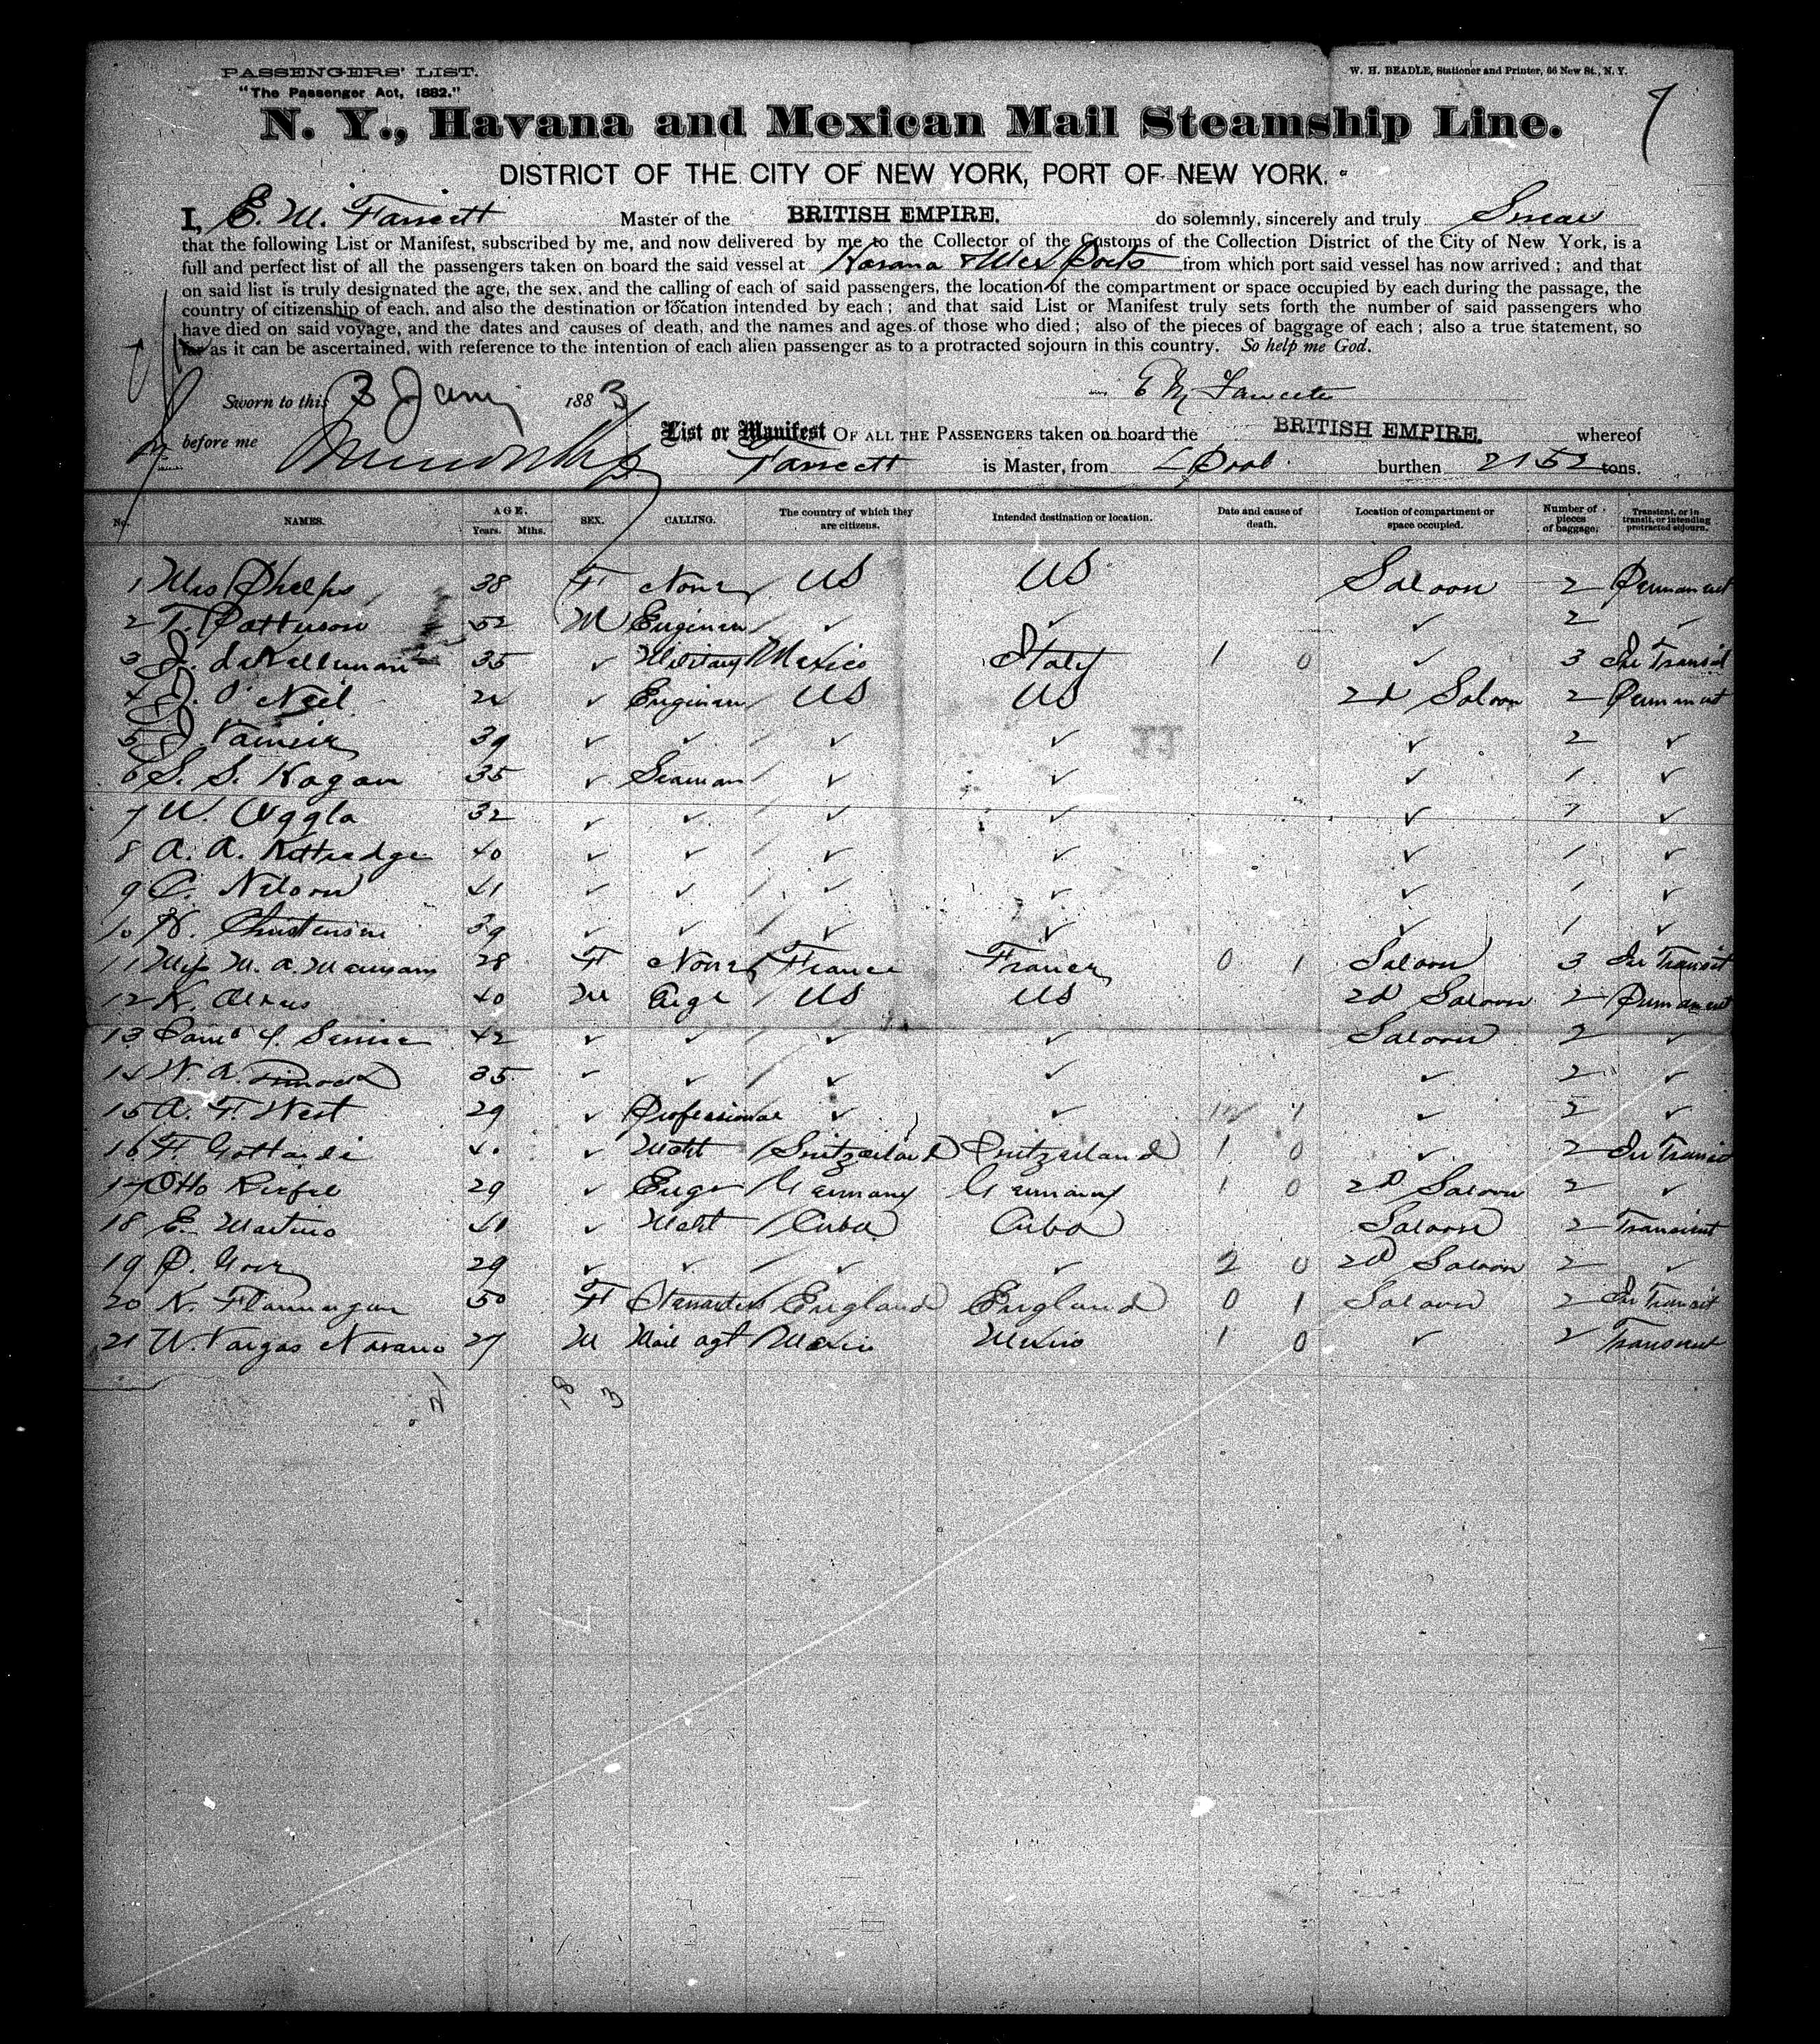 PASSENGERS' LIST.
"The Passenger Act, 1882."
W. H. BEADLE, Stationer and Printer, 66 New St., N. Y.
7
N. Y., Havana and Mexican Mail Steamship Line.
DISTRICT OF THE CITY OF NEW YORK, PORT OF NEW YORK.
I, E. M. Fawcett Master of the BRITISH EMPIRE. do solemnly, sincerely and truly Swear
that the following List or Manifest, subscribed by me, and now delivered by me to the Collector of the Customs of the Collection District of the City of New York, is a
full and perfect list of all the passengers taken on board the said vessel at Havana & Mex Ports from which port said vessel has now arrived; and that
on said list is truly designated the age, the sex, and the calling of each of said passengers, the location of the compartment or space occupied by each during the passage, the
country of citizenship of each, and also the destination or location intended by each; and that said List or Manifest truly sets forth the number of said passengers who
have died on said voyage, and the dates and causes of death, and the names and ages of those who died; also of the pieces of baggage of each; also a true statement, so
far as it can be ascertained, with reference to the intention of each alien passenger as to a protracted sojourn in this country. So help me God.
Sworn to this 3 Jany 1883 E M Fawcett
before me
List or Manifest OF ALL THE PASSENGERS taken on board the BRITISH EMPIRE. whereof
Fawcett is Master, from LPool burthen 2152 tons.
No. NAMES. AGE. Years. Mths. SEX. CALLING. The country of which they are citizens. Intended destination or location. Date and cause of death. Location of compartment or space occupied. Number of pieces of baggage. Transient, or in transit, or intending protracted sojourn.
1 Mrs Phelps 38 F None US US Saloon 2 Permanent
2 T. Patterson 52 M Engineer ✓ ✓ ✓ 2 ✓
3 J. 35 ✓ Military Mexico Italy 1 0 ✓ 3 In Transit
4 J. O'Neil 24 ✓ Engineer US US 2d Saloon 2 Permanent
5 J 39 ✓ ✓ ✓ ✓ ✓ 2 ✓
6 S. S. Hogan 35 ✓ Seaman ✓ ✓ ✓ 1 ✓
7 W. Uggla 32 ✓ ✓ ✓ ✓ ✓ 1 ✓
8 A. A. Kettredge 40 ✓ ✓ ✓ ✓ ✓ 1 ✓
9 C. Nelson 41 ✓ ✓ ✓ ✓ ✓ 1 ✓
10 H. Christensen 39 ✓ ✓ ✓ ✓ ✓ 1 ✓
11 Miss M. A. 28 F None France France 0 1 Saloon 3 In Transit
12 K. 40 M Engr US US 2d Saloon 2 Permanent
13 42 ✓ ✓ ✓ ✓ Saloon 2 ✓
14 W. A. 35 ✓ ✓ ✓ ✓ ✓ 2 ✓
15 A. F. West 29 ✓ Professional ✓ ✓ ✓ 2 ✓
16 F. 4. ✓ Mcht Switzerland Switzerland 1 0 ✓ 2 In Transit
17 Otto 29 ✓ Engr Germany Germany 1 0 2d Saloon 2 ✓
18 E. Martino 41 ✓ Mcht Cuba Cuba Saloon 2 Transient
19 P. 29 ✓ ✓ ✓ ✓ 2 0 2d Saloon 2 ✓
20 N. Flannagan 50 F Stewardess England England 0 1 Saloon 2 In Transit
21 W. Vargas Navarro 27 M Mail agt Mexico Mexico 1 0 ✓ 2 Transient
21 18 3